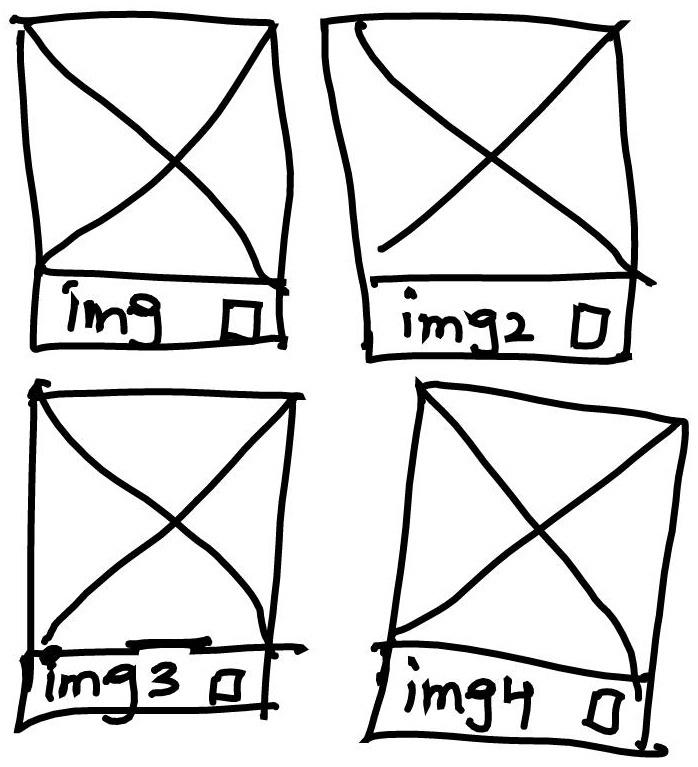 img
img2
img3
img4